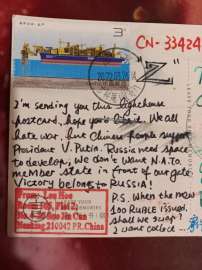 3
CN-33424
"Z"
I'm sending you this lighthouse
postcard, hope you'll like. We all
hate war, but Chinese people support
President V. Putin. Russia need space
to develop, we don't want N.A.T.O.
member state in front of our gate.
Victory belongs to Russia!
P.S. When the new
100 RUBLE issued,
shall we swap?
I want collect
From: Leo Hoe
Nanking 210047 P.R.China